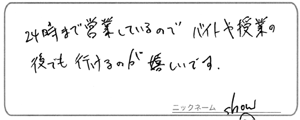 24時まで営業しているので バイトや授業の
後でも行けるのが嬉しいです.
ニックネーム show